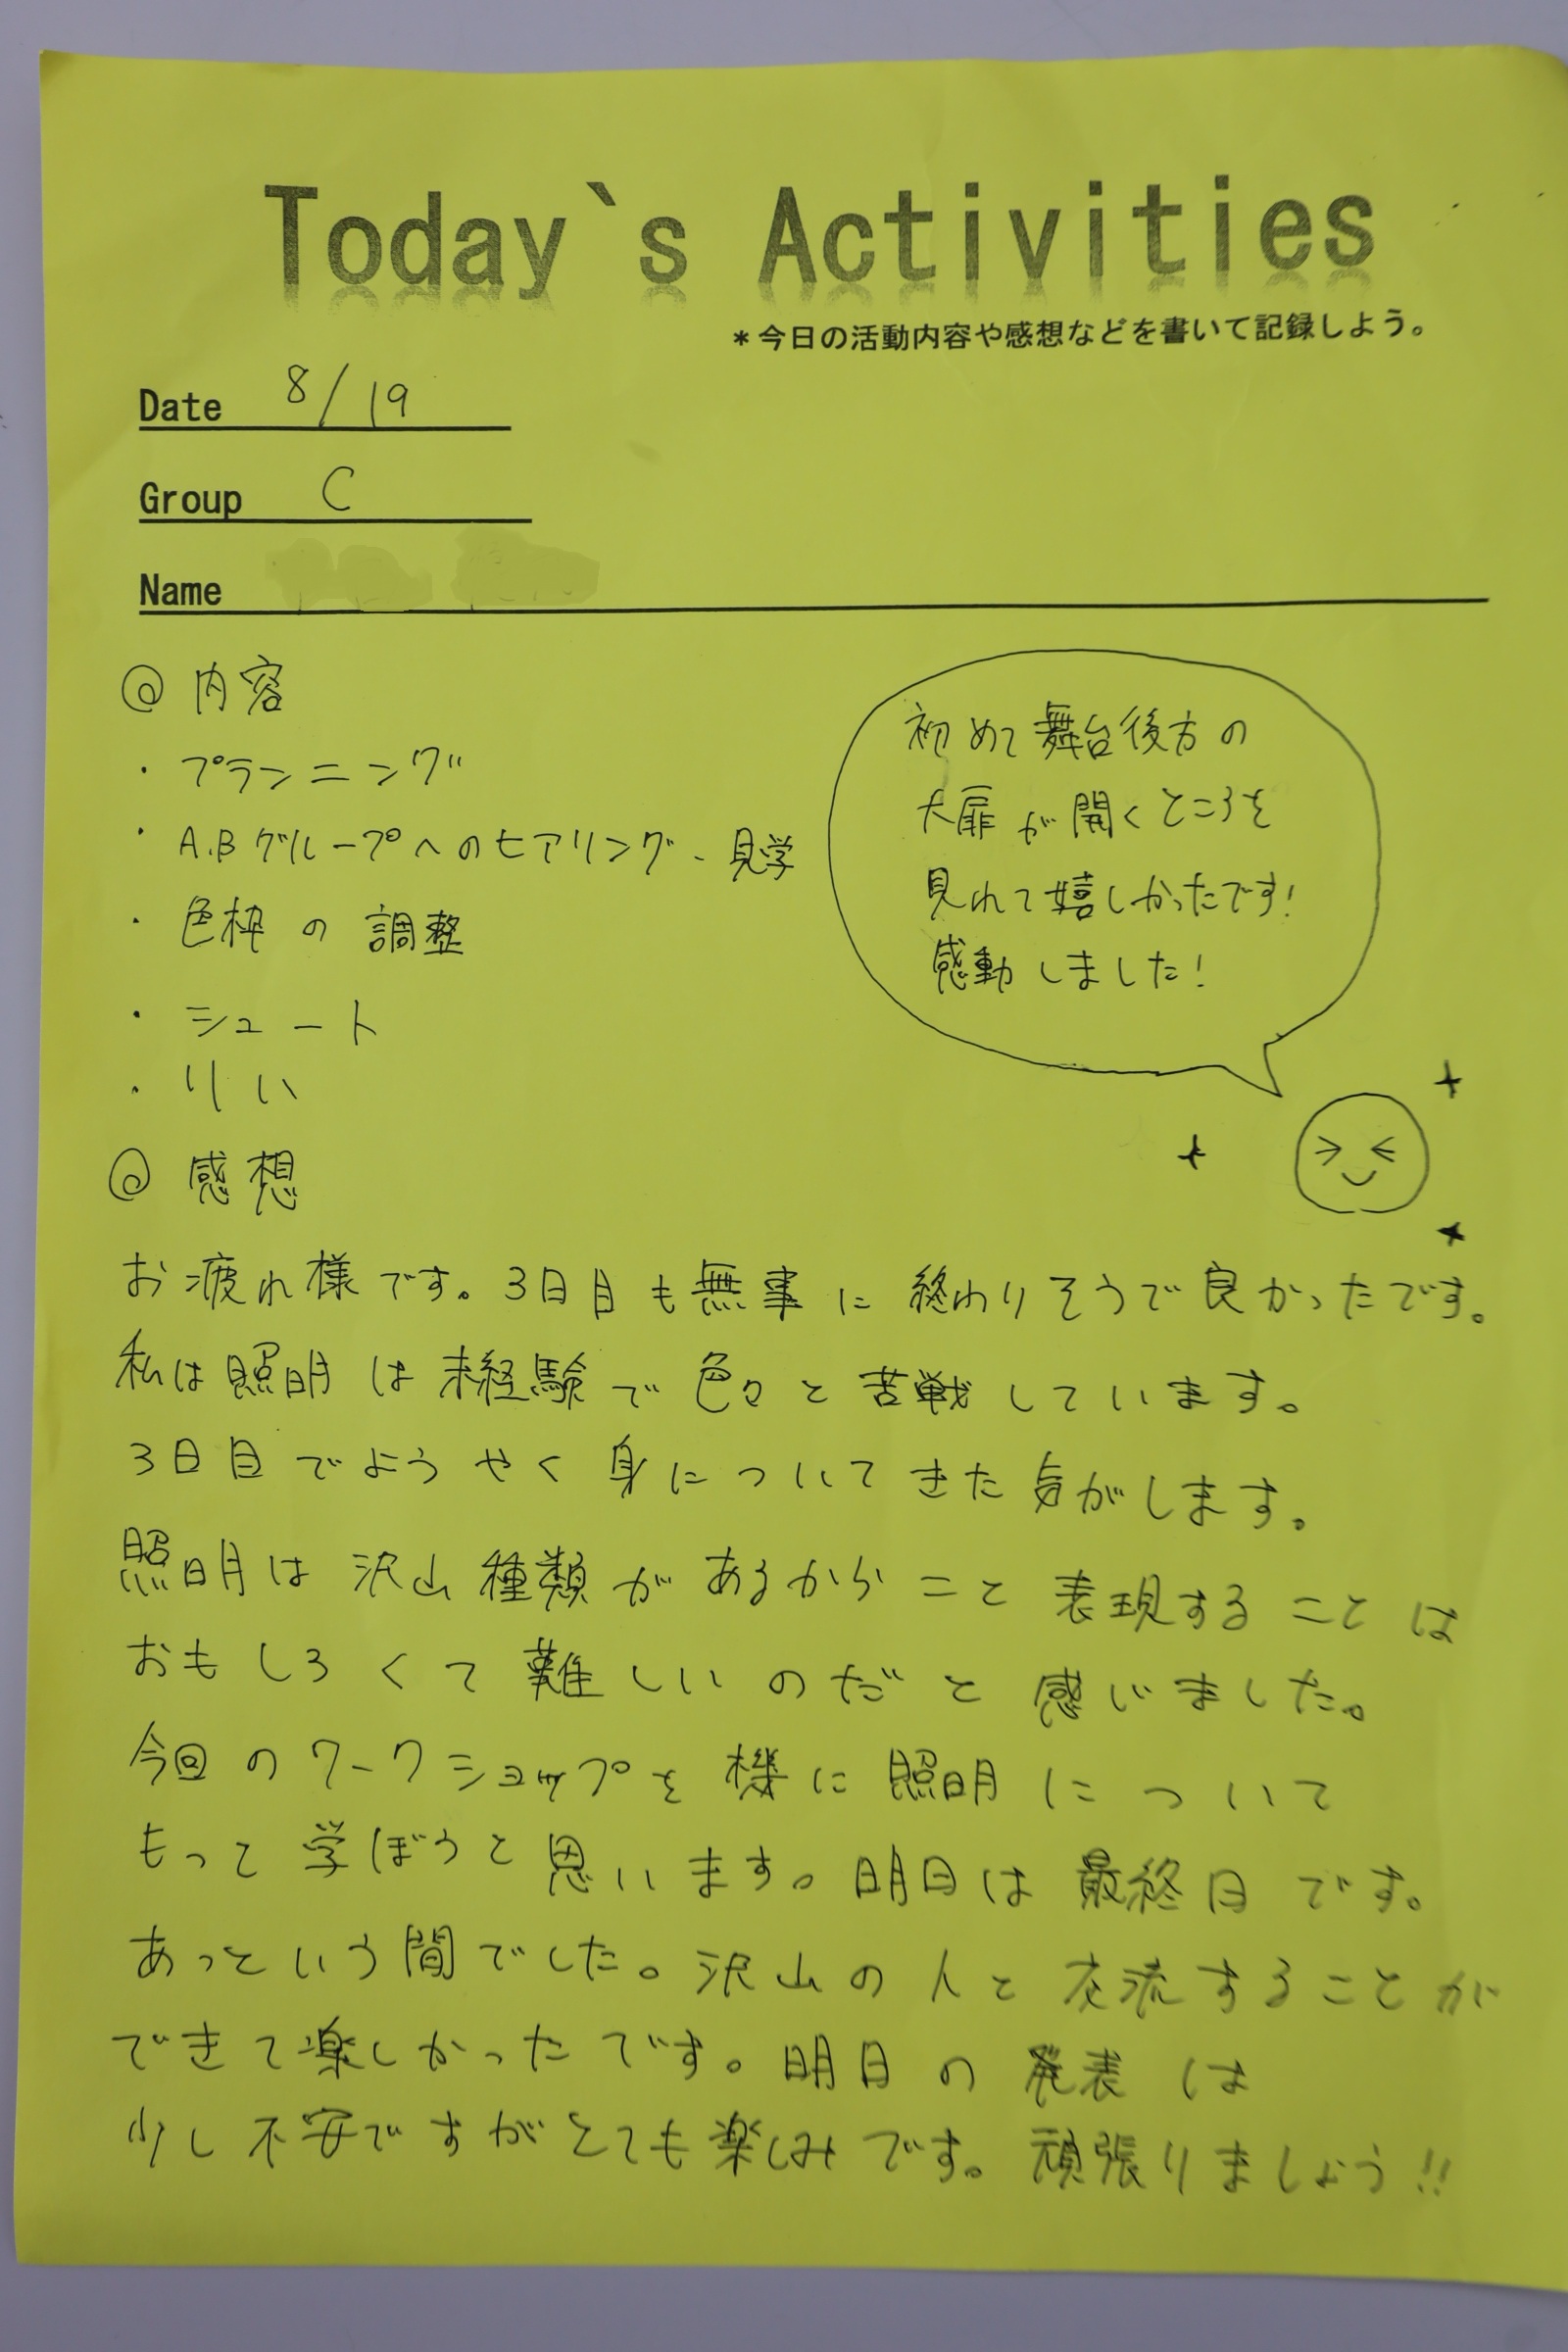 Today`s Activities
*今日の活動内容や感想などを書いて記録しよう。
Date 8/19
Group C
Name
◎ 内容
・プランニング
・A.Bグループへのヒアリング、見学
・色枠の調整
・シュート
・りい
初めて舞台後方の
大扉が開くところを
見れて嬉しかったです!
感動しました!
◎ 感想
お疲れ様です。3日目も無事に終わりそうで良かったです。
私は照明は未経験で色々と苦戦しています。
3日目でようやく身についてきた気がします。
照明は沢山種類があるからこと表現することは
おもしろくて難しいのだと感じました。
今回のワークショップを機に照明について
もって学ぼうと思います。明日は最終日です。
あっという間でした。沢山の人と交流することが
できて楽しかったです。明日の発表は
少し不安ですがとても楽しみです。頑張りましょう!!